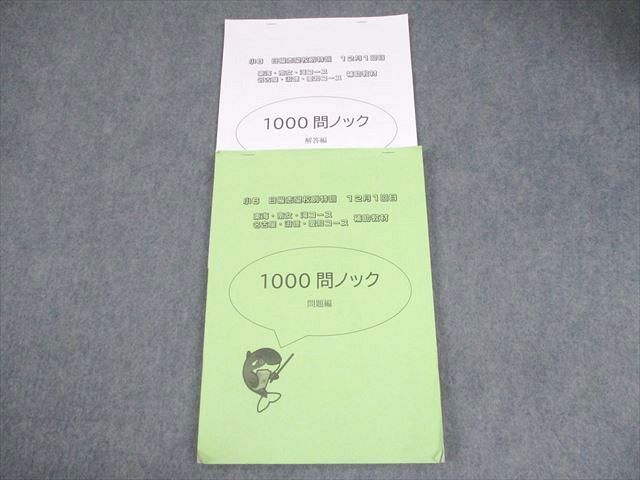 小6 日曜志望校別特訓 12月1回目
東海・南女・滝コース
名古屋・淑徳・愛知コース
補助教材
1000問ノック
解答編
小6 日曜志望校別特訓 12月1回目
東海・南女・滝コース
名古屋・淑徳・愛知コース
補助教材
1000問ノック
問題編